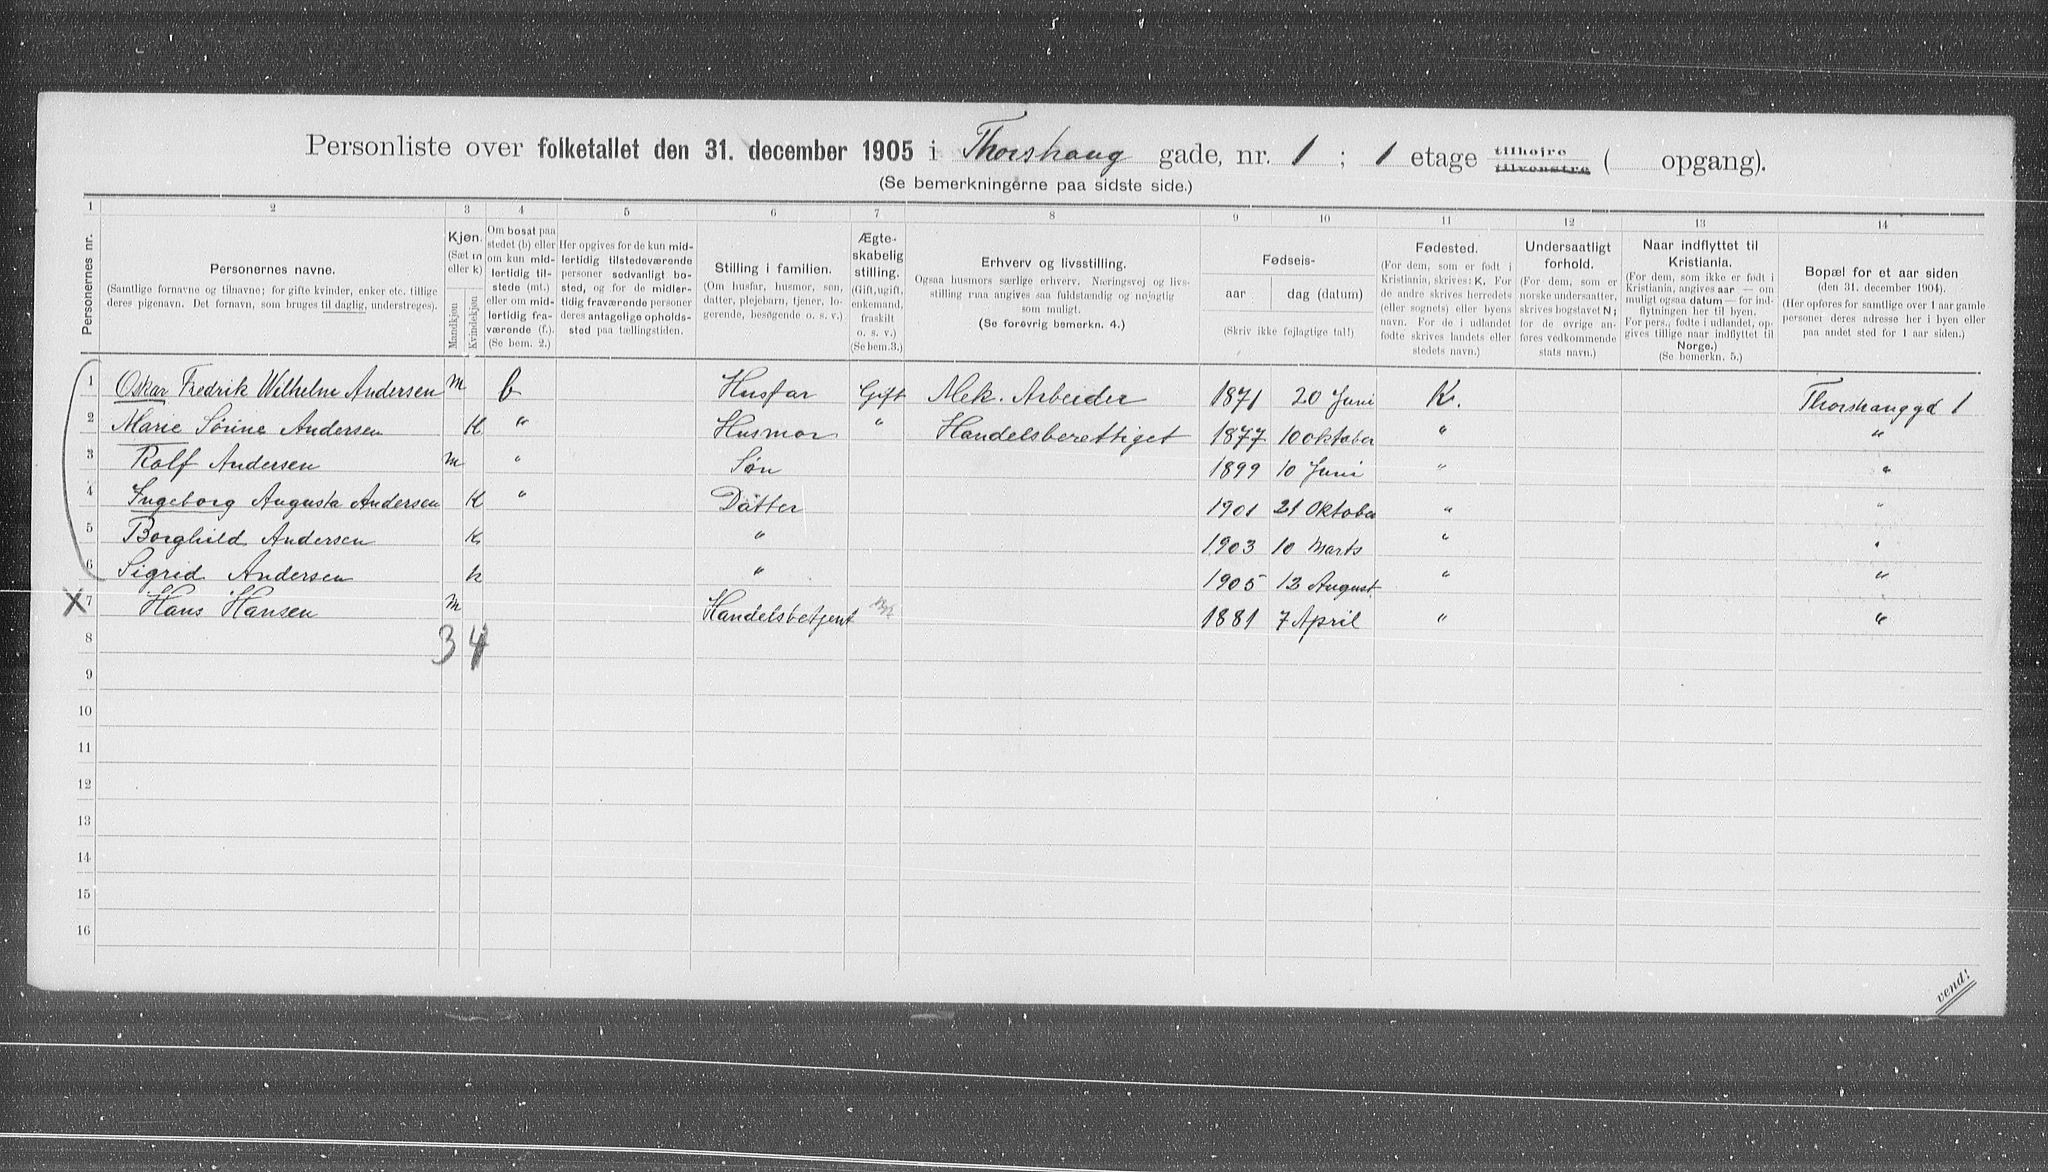 Personliste over folketallet den 31. december 1905 i Thorshaug gade, nr. 1 ; 1 etage tilhøjre tilvenstre ( opgang).
(Se bemerkningerne paa sidste side.)
1 2 3 4 5 6 7 8 9 10 11 12 13 14
Personernes nr.
Personernes navne.
(Samtlige fornavne og tilnavne; for gifte kvinder, enker etc. tillige
deres pigenavn. Det fornavn, som bruges til daglig, understreges).
Kjøn.
(Sæt m
eller k)
Mandkjøn
Kvindekjøn
Om bosat paa
stedet (b) eller
om kun mid-
lertidig til-
stede (mt.)
eller om mid-
lertidig fra-
værende (f.).
(Se bem. 2.)
Her opgives for de kun mid-
lertidig tilstedeværende
personer sedvanligt bo-
sted, og for de midler-
tidig fraværende personer
deres antagelige opholds-
sted paa tællingstiden.
Stilling i familien.
(Om husfar, husmor, søn,
datter, plejebarn, tjener, lo-
gerende, besøgende o. s. v.)
Ægte-
skabelig
stilling.
(Gift, ugift,
enkemand,
fraskilt
o. s. v.)
(Se bem. 3.)
Erhverv og livsstilling.
Ogsaa husmors særlige erhverv. Næringsvej og livs-
stilling maa angives saa fuldstændig og nøjagtig
som muligt.
(Se forøvrig bemerkn. 4.)
Fødseis-
aar dag (datum)
(Skriv ikke fejlagtige tal!)
Fødested.
(For dem, som er født i
Kristiania, skrives: K. For
de andre skrives herredets
(eller sognets) eller byens
navn. For de i udlandet
fødte skrives landets eller
stedets navn.)
Undersaatligt
forhold.
(For dem, som er
norske undersaatter,
skrives bogstavet N;
for de øvrige an-
føres vedkommende
stats navn.)
Naar indflyttet til
Kristiania.
(For dem, som ikke er født i
Kristiania, angives aar — om
muligt ogsaa datum — for ind-
flytningen her til byen.
For pers., fødte i udlandet, op-
gives tillige naar indflyttet til
Norge.)
(Se bemerkn. 5.)
Bopæl for et aar siden
(den 31. december 1904).
(Her opføres for samtlige over 1 aar gamle
personer deres adresse her i byen eller
paa andet sted for 1 aar siden.)
1 Oskar Fredrik Wilhelm Andersen m b Husfar Gift Mek. Arbeider 1871 20 Juni K. Thorshauggd 1
2 Marie Sørine Andersen K " Husmor " Handelsberettiget 1877 10 oktober " "
3 Rolf Andersen m " Søn 1899 10 Juni " "
4 Ingeborg Augusta Andersen K " Datter 1901 21 Oktober " "
5 Borghild Andersen K " 1903 10 Marts " "
6 Sigrid Andersen k " 1905 13 August " "
X 7 Hans Hansen m Handelsbetjent 1881 7 April " "
8 3 4
9
10
11
12
13
14
15
16
vend!